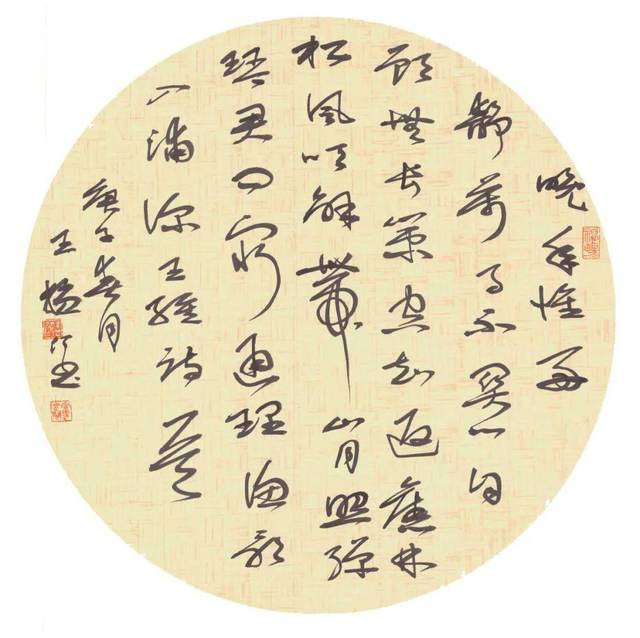 晚年惟好
靜萬事不關心自
顧無長策空知返舊林
松風吹解帶山月照彈
琴君問窮通理漁歌
入浦深王維詩一首
庚子春月
王書